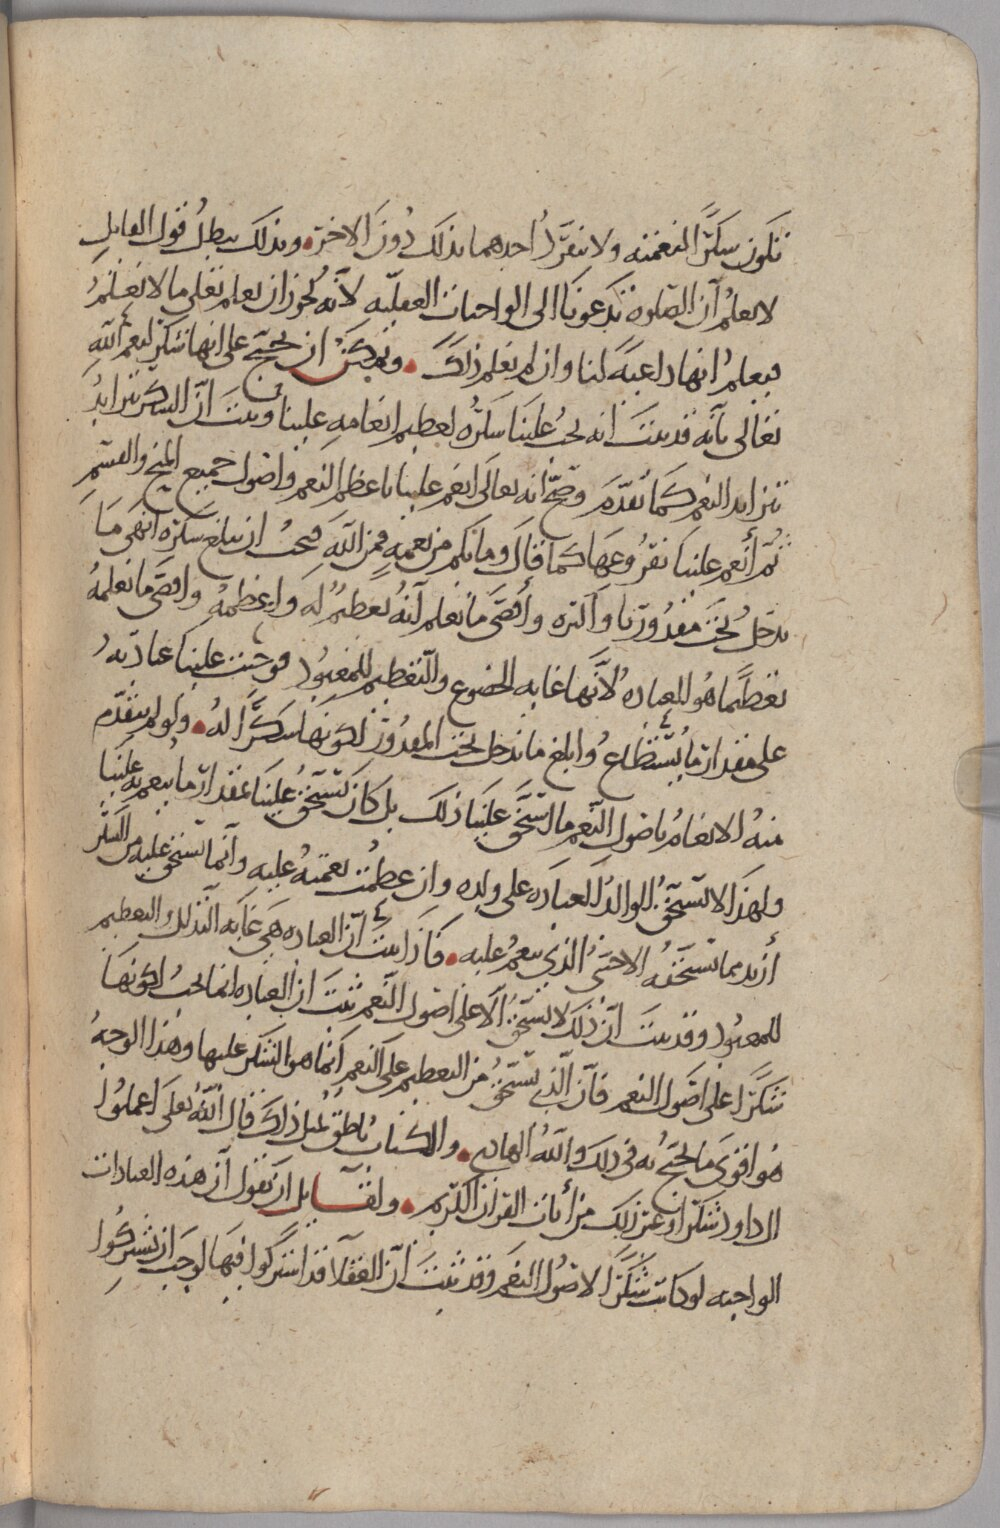 تكون شكرًا لنعمته ولا ينفرد احدهما بذلك دون الاخر وبذلك يبطل قول القايل
لا نعلم ان الصلوه تدعونا الى الواجبات العقليه لانه يجوز ان يعلم تعلى ما لا نعلم
فيعلم انها داعيه لنا وان لم نعلم ذلك ويمكن ان يحتج على انها شكر لنعم الله
تعالى بانه قد ثبت انه يجب علينا شكره لعظيم انعامه علينا وثبت ان الشكر يتزايد
بتزايد النعم كما تقدم وصح انه تعالى انعم علينا باعظم النعم واصول جميع المنح والقسم
ثم أنعم علينا بفروعها كما قال وما بكم من نعمه فمن الله فيجب ان يبلغ شكره انهى ما
يدخل تحت مقدورنا واكثره وأقصى ما نعلم أنه تعظيم له وابعظمه واقصى ما نعلمه
تعظيما هو العباده لأنها غايه الخضوع والتعظيم للمعبود فوجبت علينا عبادته
على مقدار ما يستطاع وابلغ ما يدخل تحت المقدور لكونها شكرًا له ولو لم يتقدم
منه الانعام باصول النعم ما استحق علينا ذلك بل كان يستحق علينا بمقدار ما ينعم به علينا
ولهذا لا يستحق الوالد العباده على ولده وان عظمت نعمته عليه وانما يستحق عليه من الشكر
أزيد مما يستحقه الاجنبى الذي ينعم عليه فاذا ثبت ان العباده هى غايه التذلل والتعظيم
للمعبود وقد ثبت ان ذلك لا يستحق الا على اصول النعم ثبت ان العباده انما يجب لكونها
شكرًا على اصول النعم فان الذي يستحق من التعظيم على النعم انما هو الشكر عليها وهذا الوجه
هو اقوى ما يحتج به فى ذلك والله الهادي والكتاب ناطق بمثل ذلك قال الله تعلى اعملوا
ال داود شكرا وغير ذلك من أيات القران الكريم ولقايل ان يقول ان هذه العبادات
الواجبه لو كانت شكرًا لاصول النعم وقد ثبت أن العقلا قد اشتركوا فيها لوجب ان يشتركوا